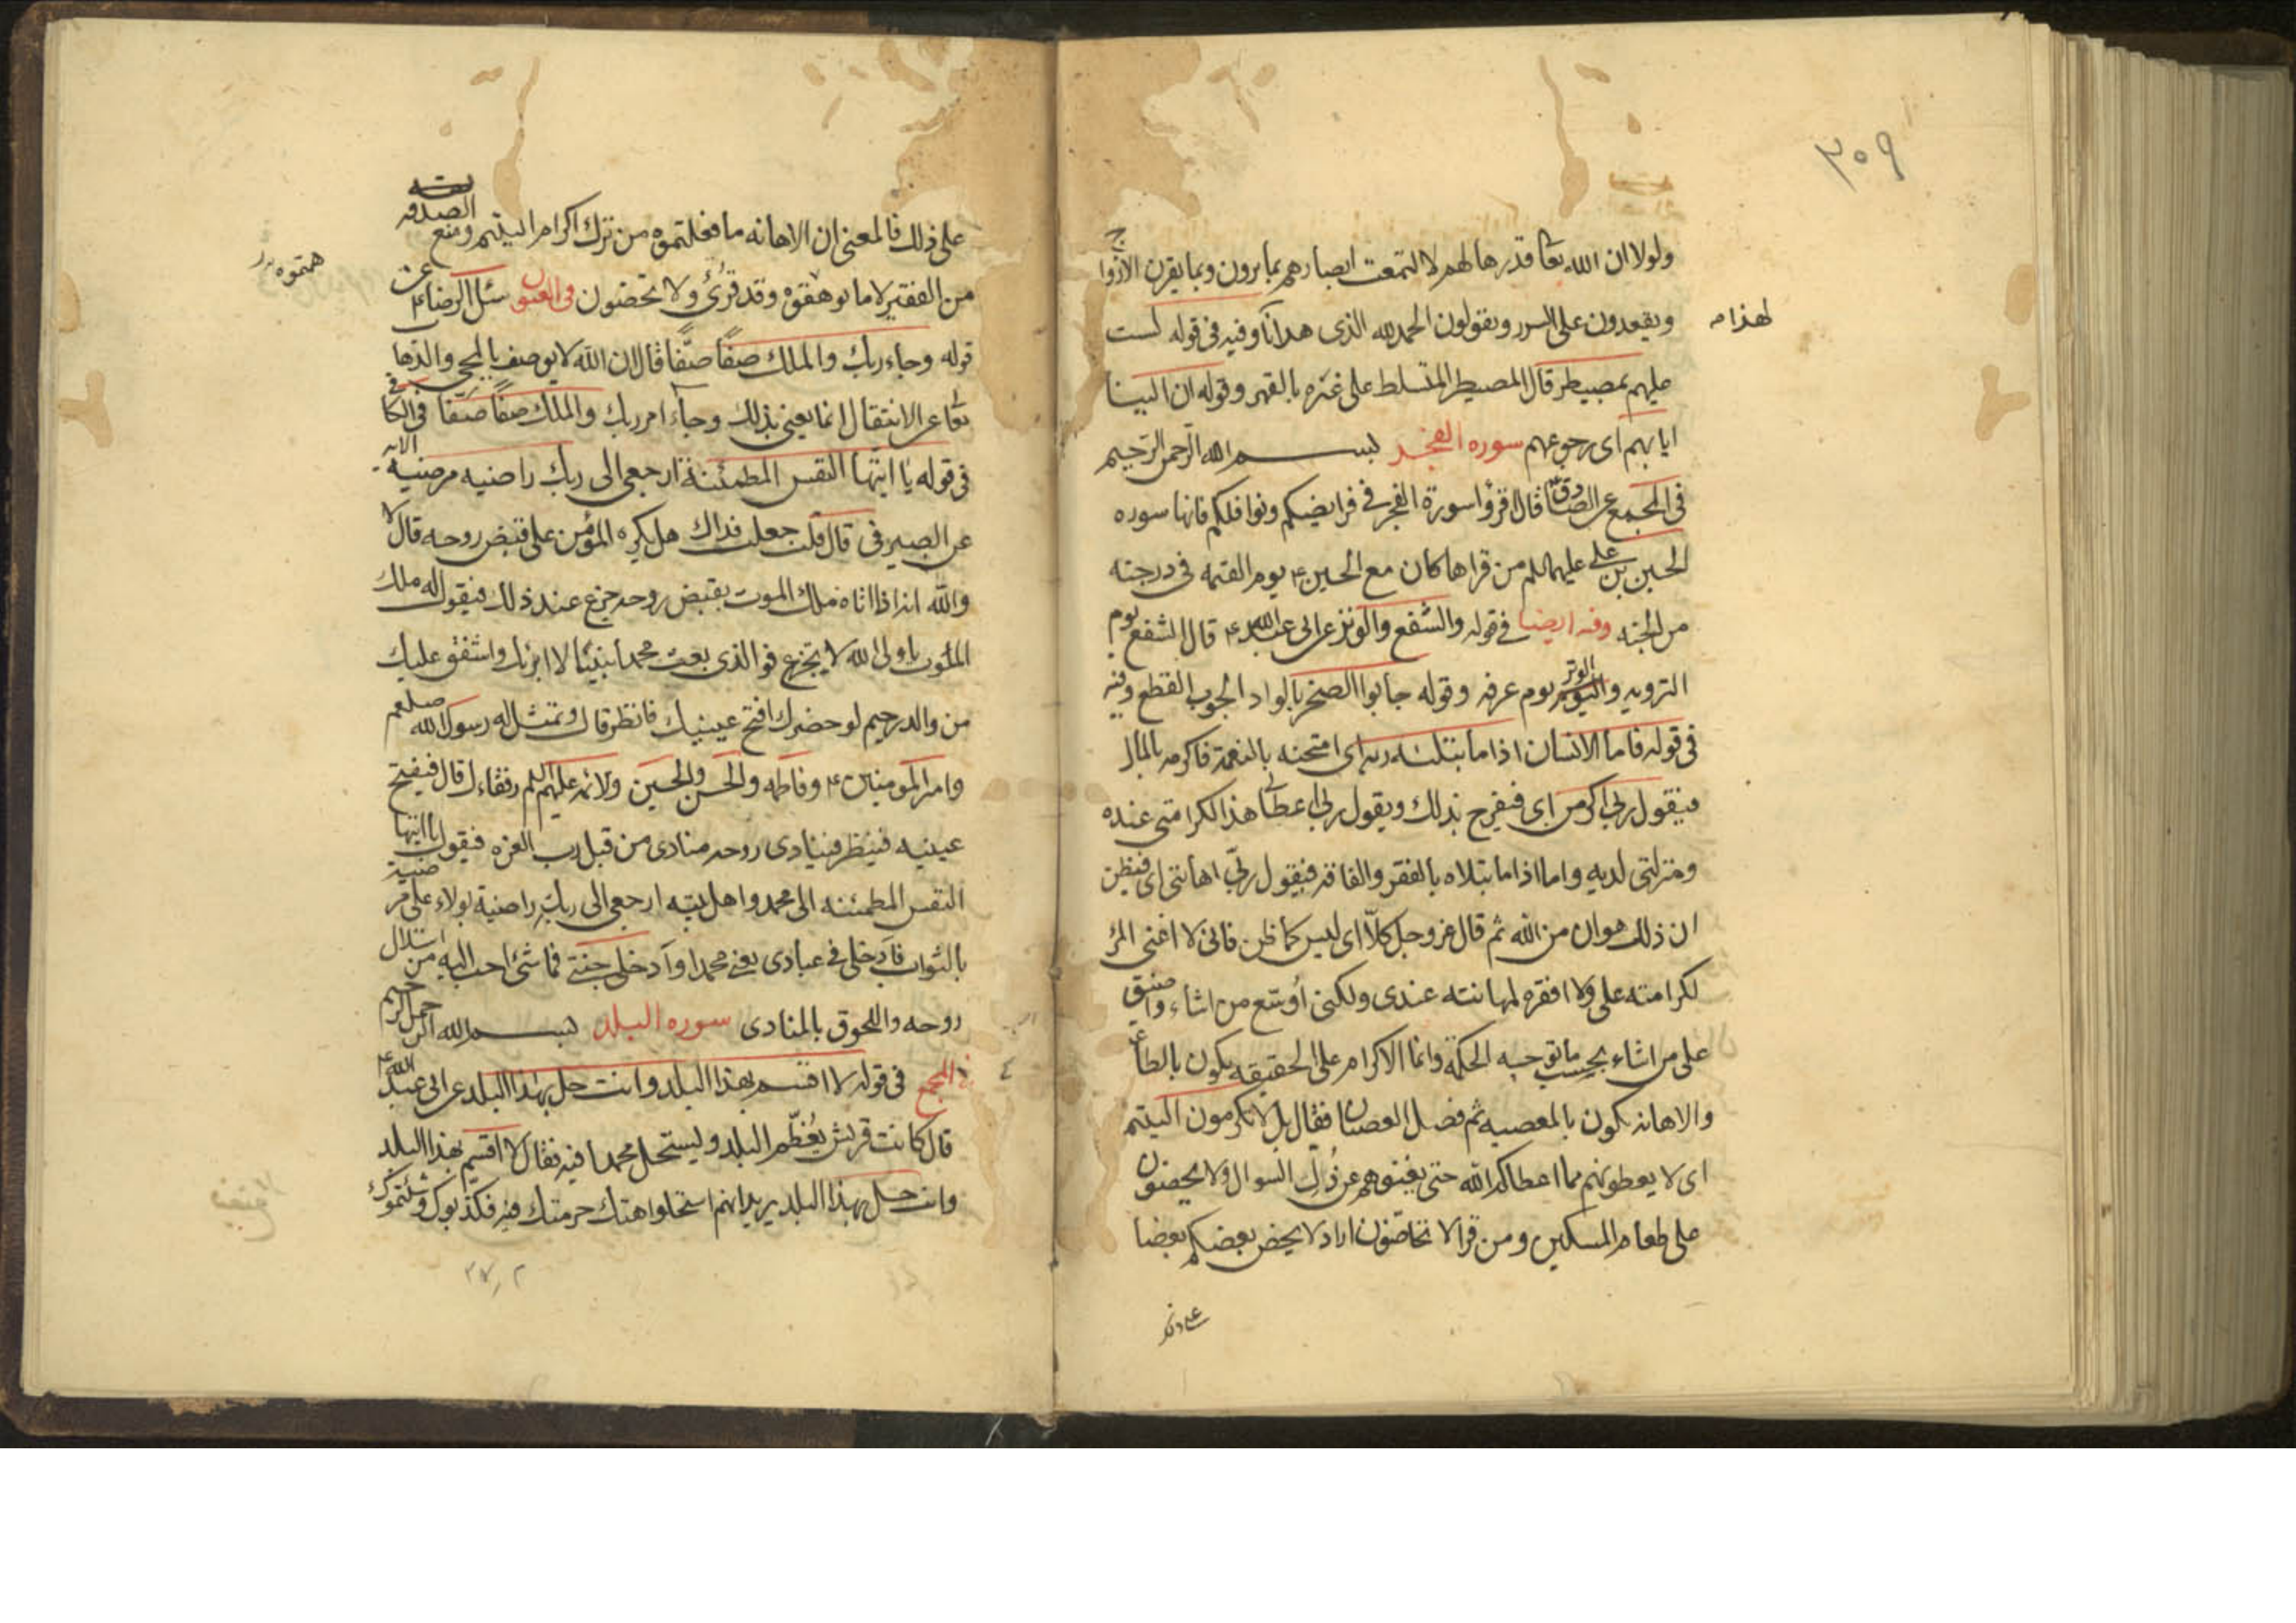 ٣٥٩
ولولا ان الله تعا قدرها لهم لالتمعت ابصارهم بما يرون وبما يقرن الازوا
ج
ويقعدون على السرر ويقولون الحمد لله الذى هدانا وفيه فى قوله لست
لهذا
عليهم بمصيطر قال المصيطر المتسلط على غيره بالقهر وقوله ان الينا
ايابهم اى رجوعهم سوره الفجر بسم الله الرحمن الرحيم
فى المجمع عن الصادق قال اقرؤا سورة الفجر فى فرايضكم ونوافلكم فانها سوره
الحسين بن على عليهما السلم من قراها كان مع الحسين ع يوم القيمه فى درجته
من الجنه وفيه ايضا فى قوله والشفع والوتر عن ابى عبد الله ع قال الشفع يوم
الترويه والوتر يوم عرفه وقوله جابوا الصخر بالواد الجوب القطع وفيه
فى قوله فاما الانسان اذا ما ابتلئه ربه اى امتحنه بالنعمة فاكرمه بالمال
فيقول ربى اكرمن اى فيفرح بذلك ويقول ربى اعطانى هذا لكرامتى عنده
ومنزلتى لديه واما اذا ما ابتلاه بالفقر والفاقه فيقول ربى اهانتى اى فيظن
ان ذلك هوان من الله ثم قال عز وجل كلا اى ليس كما ظن فانى لا اغنى المرء
لكرامته على ولا افقره لمهانته عندى ولكنى اوسع من اشاء واضيق
على من اشاء بحسب ما توجبه الحكمة وانما الاكرام على الحقيقه يكون بالطاعه
والاهانه يكون بالمعصيه ثم فصل العصيان فقال بل لا تكرمون اليتيم
اى لا يعطونهم مما اعطاكم الله حتى يغنوهم عن ذل السوال ولا يحضون
على طعام المسكين ومن قرا لا تحاضون اراد لا يحض بعضكم بعضا
على ذلك
على ذلك فالمعنى ان الاهانه ما فعلتموه من ترك اكرام اليتيم ومنع الصدقه
من الفقير لا ما توهمتموه وقد قرئ ولا تحضون فى العيون سئل الرضا ع عن
همتموه
قوله وجاء ربك والملك صفا صفا قال ان الله لا يوصف بالمجى والذها
تعا عن الانتقال انما يعنى بذلك وجاء امر ربك والملك صفا صفا فى الكا
فى قوله يا ايتها النفس المطمئنة ارجعى الى ربك راضيه مرضيه الايه
عن الصيرفى قال قلت جعلت فداك هل يكره المؤمن على قبض روحه قال لا
والله انه اذا اتاه ملك الموت يقبض روحه جزع عند ذلك فيقول له ملك
الموت يا ولى الله لا تجزع فو الذى بعث محمدا نبيا لانا ابر بك واشفق عليك
من والد رحيم لو حضرك افتح عينيك فانظر قال وتمثل له رسول الله صلعم
وامير المومنين ع وفاطمه والحسن والحسين والائمه عليهم السلم رفقاءك قال فيفتح
عينيه فينظر فينادى روحه منادى من قبل رب العزه فيقول يا ايتها
النفس المطمئنه الى محمد واهل بيته ارجعى الى ربك راضية بولاء على مرضية
بالثواب فادخلى فى عبادى يعنى محمدا وادخلى جنتى فما شئ احب اليه من استلال
روحه واللحوق بالمنادى سوره البلد بسم الله الرحمن الرحيم
فى المجمع فى قوله لا اقسم بهذا البلد وانت حل بهذا البلد عن ابى عبد الله ع
قال كانت قريش يعظم البلد وليستحل محمدا فيه فقال لا اقسم بهذا البلد
وانت حل بهذا البلد يريد انهم استحلوا هتك حرمتك فيه فكذبوك وشتموك